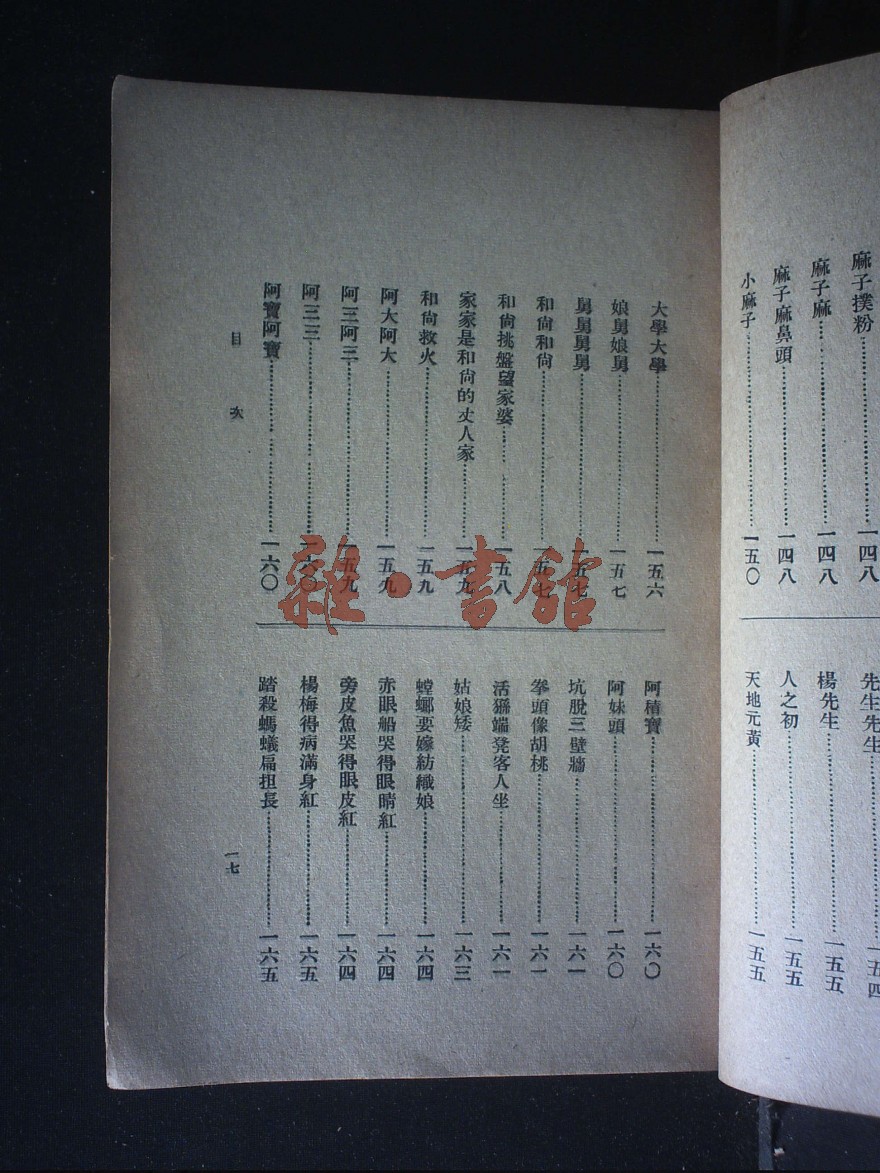 麻子撲粉……一四八
麻子麻……一四八
麻子麻鼻頭……一四八
小麻子……一五〇
先生先生……一五四
楊先生……一五五
人之初……一五五
天地元黃……一五五
大學大學……一五六
娘舅娘舅……一五七
舅舅舅舅……一五七
和尙和尙……一五七
和尙挑盤望家婆……一五八
家家是和尙的丈人家……一五九
和尙救火……一五九
阿大阿大……一五九
阿三阿三……一五九
阿三三……一六〇
阿寶阿寶……一六〇
阿積寶……一六〇
阿妹頭……一六〇
坑脫三壁牆……一六一
拳頭像胡桃……一六一
活猻端凳客人坐……一六一
姑娘矮……一六三
螳螂要嫁紡織娘……一六四
赤眼船哭得眼睛紅……一六四
旁皮魚哭得眼皮紅……一六四
楊梅得病滿身紅……一六五
踏殺螞蟻扁担長……一六五
目次
一七
雜·書館